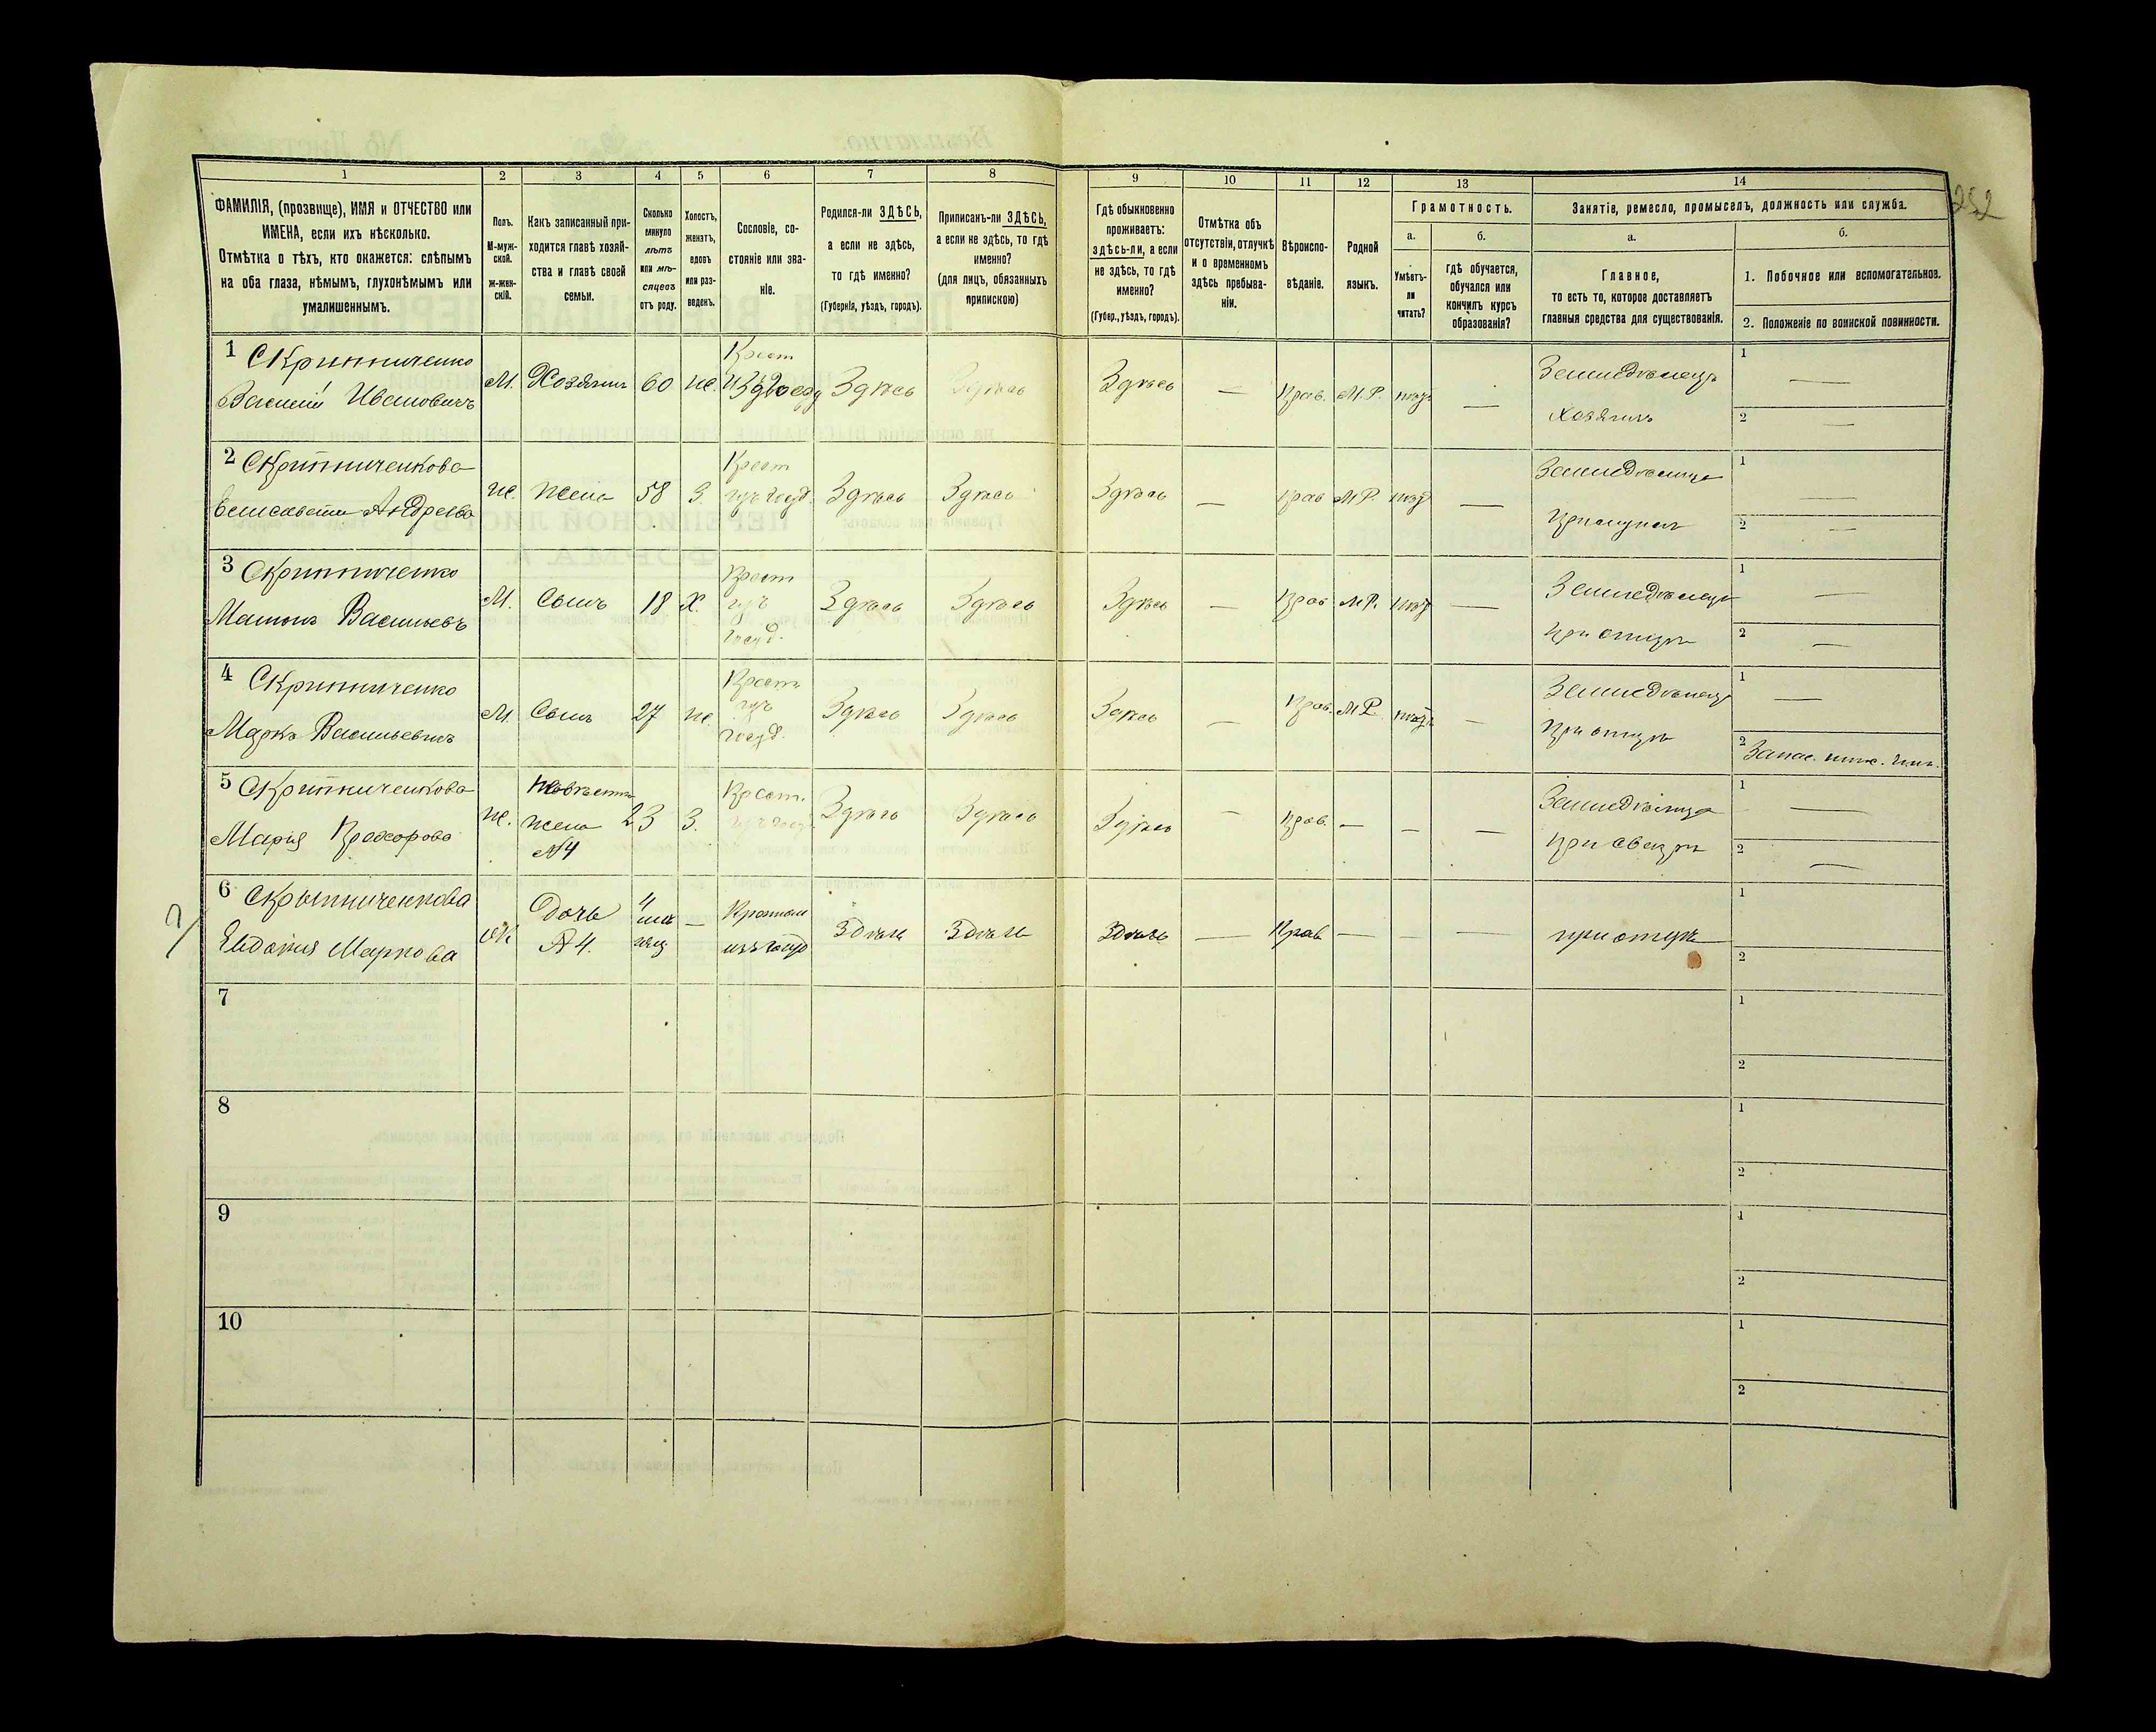 252
1 2 3 4 5 6 7 8 9 10 11 12 13 14
ФАМИЛІЯ, (прозвище), ИМЯ и ОТЧЕСТВО или
ИМЕНА, если ихъ нѣсколько.
Отмѣтка о тѣхъ, кто окажется: слѣпымъ
на оба глаза, нѣмымъ, глухонѣмымъ или
умалишеннымъ.
Полъ.
М-муж-
ской.
ж-жен-
скій.
Какъ записанный при-
ходится главѣ хозяй-
ства и главѣ своей
семьи.
Сколько
минуло
лѣтъ
или мѣ-
сяцевъ
отъ роду.
Холостъ,
женатъ,
вдовъ
или раз-
веденъ.
Сословіе, со-
стояніе или зва-
ніе.
Родился-ли ЗДѢСЬ,
а если не здѣсь,
то гдѣ именно?
(Губернія, уѣздъ, городъ).
Приписанъ-ли ЗДѢСЬ,
а если не здѣсь, то гдѣ
именно?
(для лицъ, обязанныхъ
припискою)
Гдѣ обыкновенно
проживаетъ:
здѣсь-ли, а если
не здѣсь, то гдѣ
именно?
(Губер., уѣздъ, городъ).
Отмѣтка объ
отсутствіи, отлучкѣ
и о временномъ
здѣсь пребыва-
ніи.
Вѣроиспо-
вѣданіе.
Родной
языкъ.
Грамотность.
а.
Умѣетъ-
ли
читать?
б.
гдѣ обучается,
обучался или
кончилъ курсъ
образованія?
Занятіе, ремесло, промыселъ, должность или служба.
а.
Главное,
то есть то, которое доставляетъ
главныя средства для существованія.
б.
1. Побочное или вспомогательное.
2. Положеніе по воинской повинности.
1 Скрипниченко
Василій Ивановичъ
М. Хозяинъ 60 ж. Крест
Здѣсь Здѣсь Здѣсь — Прав. М.Р. — Земледѣлецъ
Хозяинъ
1 —
2 —
2 Скрипниченкова
Елисавета Андреева
ж. жена 58 З. Крест
изъ госуд. Здѣсь Здѣсь Здѣсь — Прав М.Р. — Земледѣлица
при мужѣ
1 —
2 —
3 Скрипниченко
Васильевъ
М. Сынъ 18 Х. Крест
изъ
госуд. Здѣсь Здѣсь Здѣсь — Прав М.Р. — Земледѣлецъ
при отцѣ
1 —
2 —
4 Скрипниченко
Марко Васильевичъ
М. Сынъ 27 ж. Крест
изъ
госуд. Здѣсь Здѣсь Здѣсь — Прав. М.Р. — Земледѣлецъ
при отцѣ
1 —
2 Запас.
5 Скрипниченкова
Марія Прохорова
ж. Невѣстка
жена
№4
23 З. Крест.
изъ госуд. Здѣсь Здѣсь Здѣсь — Прав. — — — Земледѣлица
при свекрѣ
1 —
2 —
6 Скрыпниченкова
Евдокия Маркова
Ж Дочь
№4.
4
—
изъ госуд Здѣсь Здѣсь Здѣсь — Прав — — при отцѣ
1
2
7 1
2
8 1
2
9 1
2
10 1
2